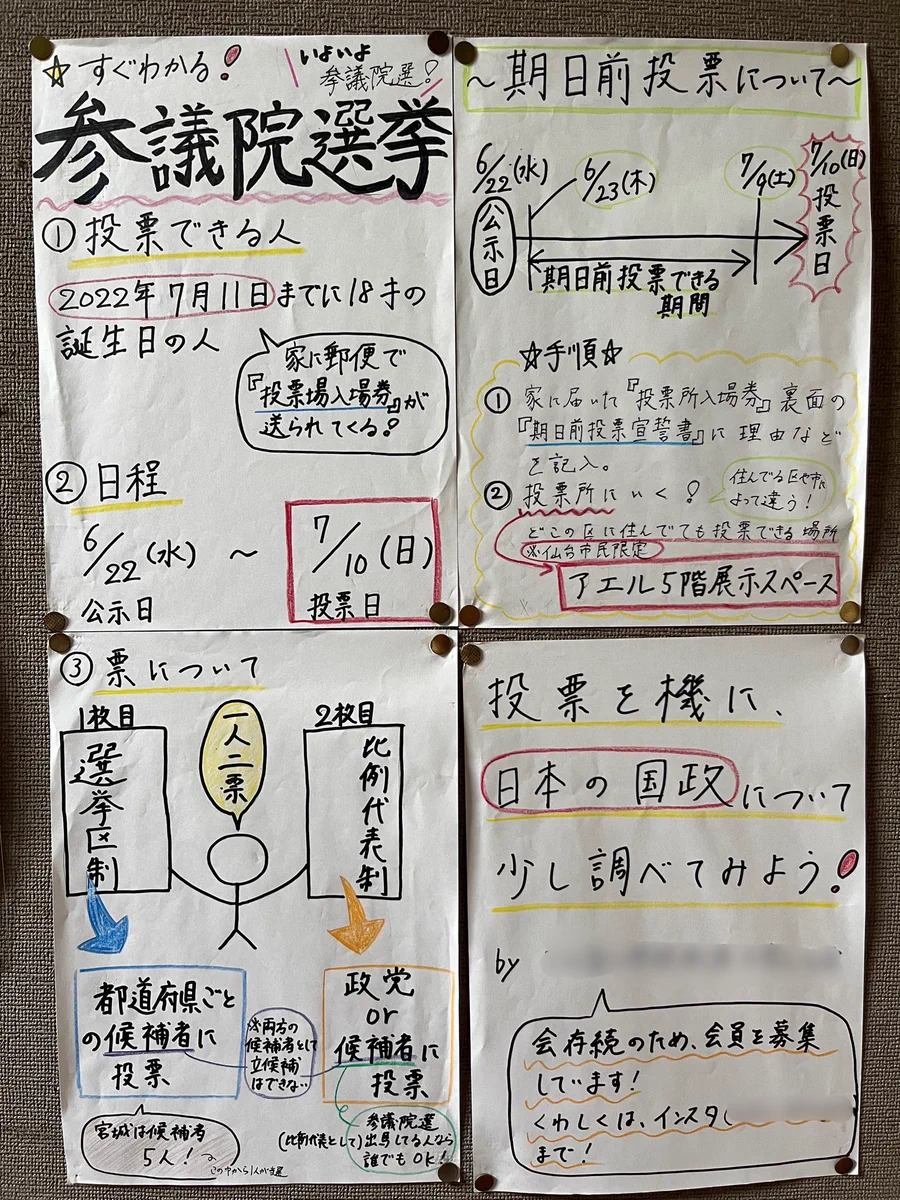 ☆すぐわかる!
いよいよ
参議院選!
参議院選挙
①投票できる人
2022年7月11日までに18才の
誕生日の人
家に郵便で
『投票場入場券』が
送られてくる!
②日程
6/22(水) ~ 7/10(日)
公示日 投票日
~期日前投票について~
6/22(水)
6/23(木)
7/9(土)
7/10(日)
公示日
投票日
期日前投票できる
期間
☆手順☆
① 家に届いた『投票所入場券』裏面の
『期日前投票宣誓書』に理由など
を記入。
② 投票所にいく!
住んでる区や市に
よって違う!
どこの区に住んでても投票できる場所
※仙台市民限定
アエル5階展示スペース
③票について
1枚目
選挙区制
一人二票
2枚目
比例代表制
都道府県ごと
の候補者に
投票
※両方の
候補者として
立候補
はできない
政党
or
候補者に
投票
宮城は候補者
5人!
この中から1人が当選
参議院選
(比例代表として)出馬してる人なら
誰でもOK!
投票を機に、
日本の国政について
少し調べてみよう!
by
会存続のため、会員を募集
しています!
くわしくは、インスタ(
まで!